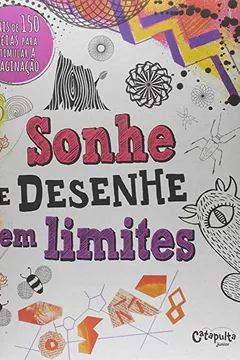 AIS DE 150
EIAS PARA
TIMULAR A
AGINAÇÃO
Sonhe
E DESENHE
em limites
Catapulta
junior